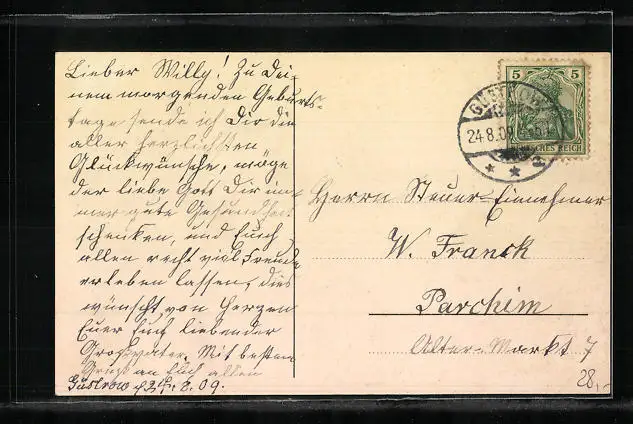 Lieber Willy! Zu Dei-
nem morgenden Geburts-
tage sende ich Dir die
aller herzlichsten
Glückwünsche, möge
der liebe Gott Dir im-
mer gute Gesundheit
schenken, und Euch
allen recht viel Freude
erleben lassen, dies
wünscht von Herzen
Euer Euch liebender
Großvater. Mit besten
Gruß an Euch allen
Güstrow d 24. 8. 09.
5 5
DEUTSCHES REICH
GÜSTROW
24.8.09
Herrn Steuer-Einnehmer
W. Franck
Parchim
Alter-Markt 7
28,-